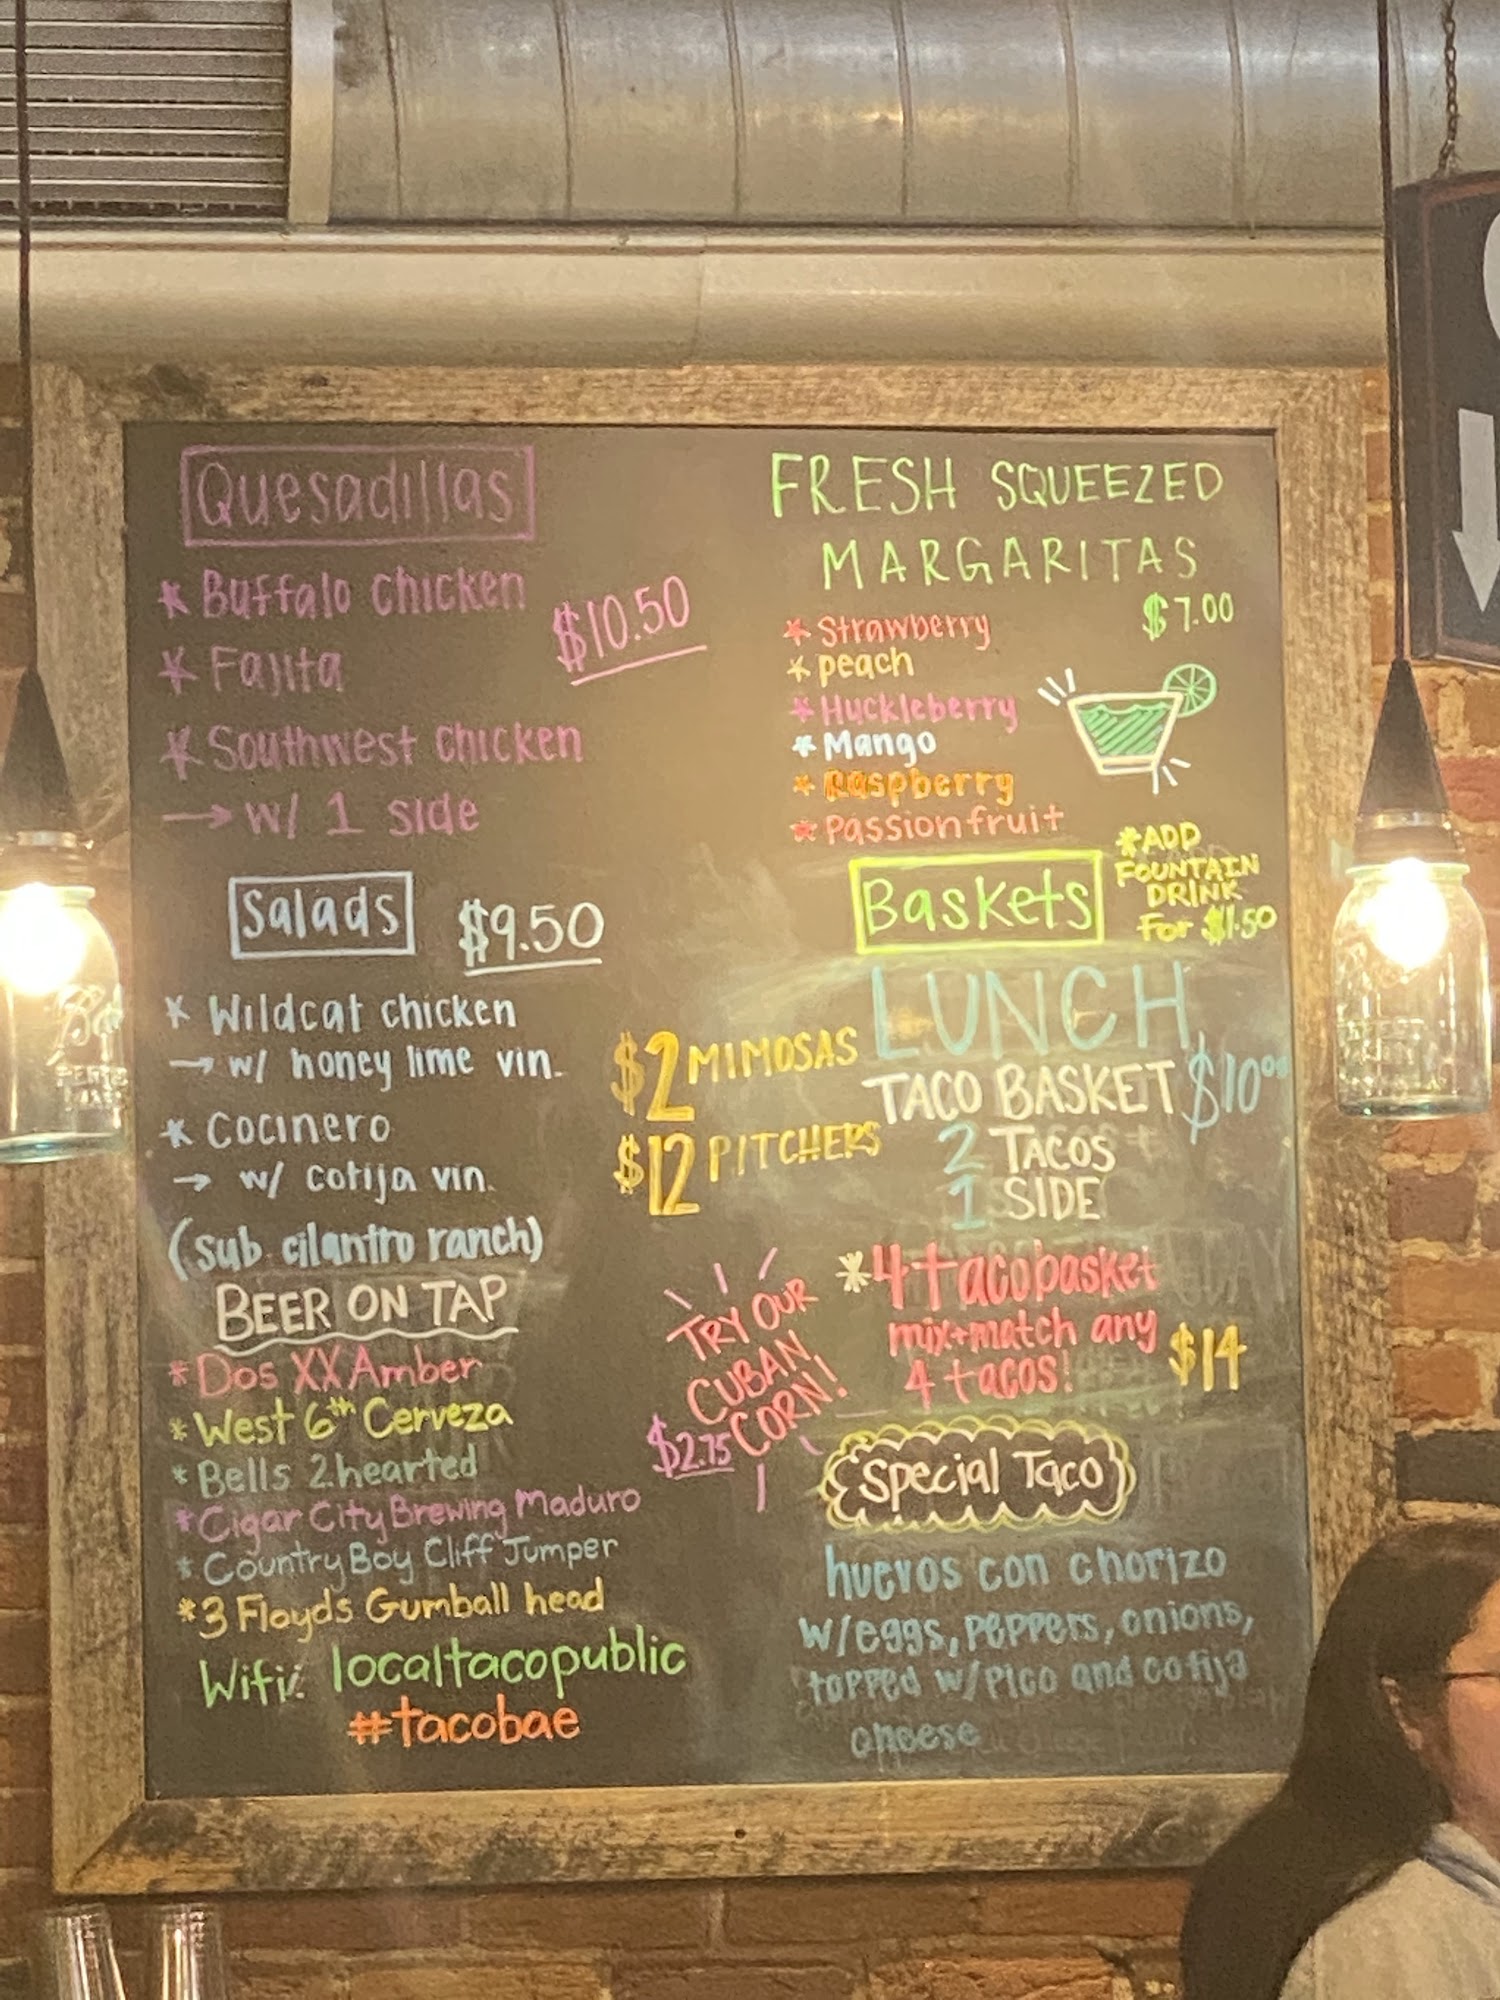 Quesadillas
* Buffalo chicken
$10.50
* Fajita
* Southwest chicken
→ w/ 1 side
Salads
$9.50
* Wildcat chicken
→ w/ honey lime vin.
* Cocinero
→ w/ cotija vin.
(sub cilantro ranch)
BEER ON TAP
* Dos XX Amber
* West 6th Cerveza
* Bells 2 hearted
* Cigar City Brewing Maduro
* Country Boy Cliff Jumper
* 3 Floyds Gumball head
Wifi: localtacopublic
#tacobae
$2 MIMOSAS
$12 PITCHERS
TRY OUR
CUBAN
CORN!
$2.75
FRESH SQUEEZED
MARGARITAS
$7.00
* Strawberry
* peach
* Huckleberry
* Mango
* Raspberry
* Passionfruit
Baskets
*ADD
FOUNTAIN
DRINK
For $1.50
LUNCH
TACO BASKET $10.00
2 TACOS
1 SIDE
*4 taco basket
mix+match any
4 tacos!
$14
Special Taco
huevos con chorizo
w/eggs, peppers, onions,
topped w/pico and cotija
cheese